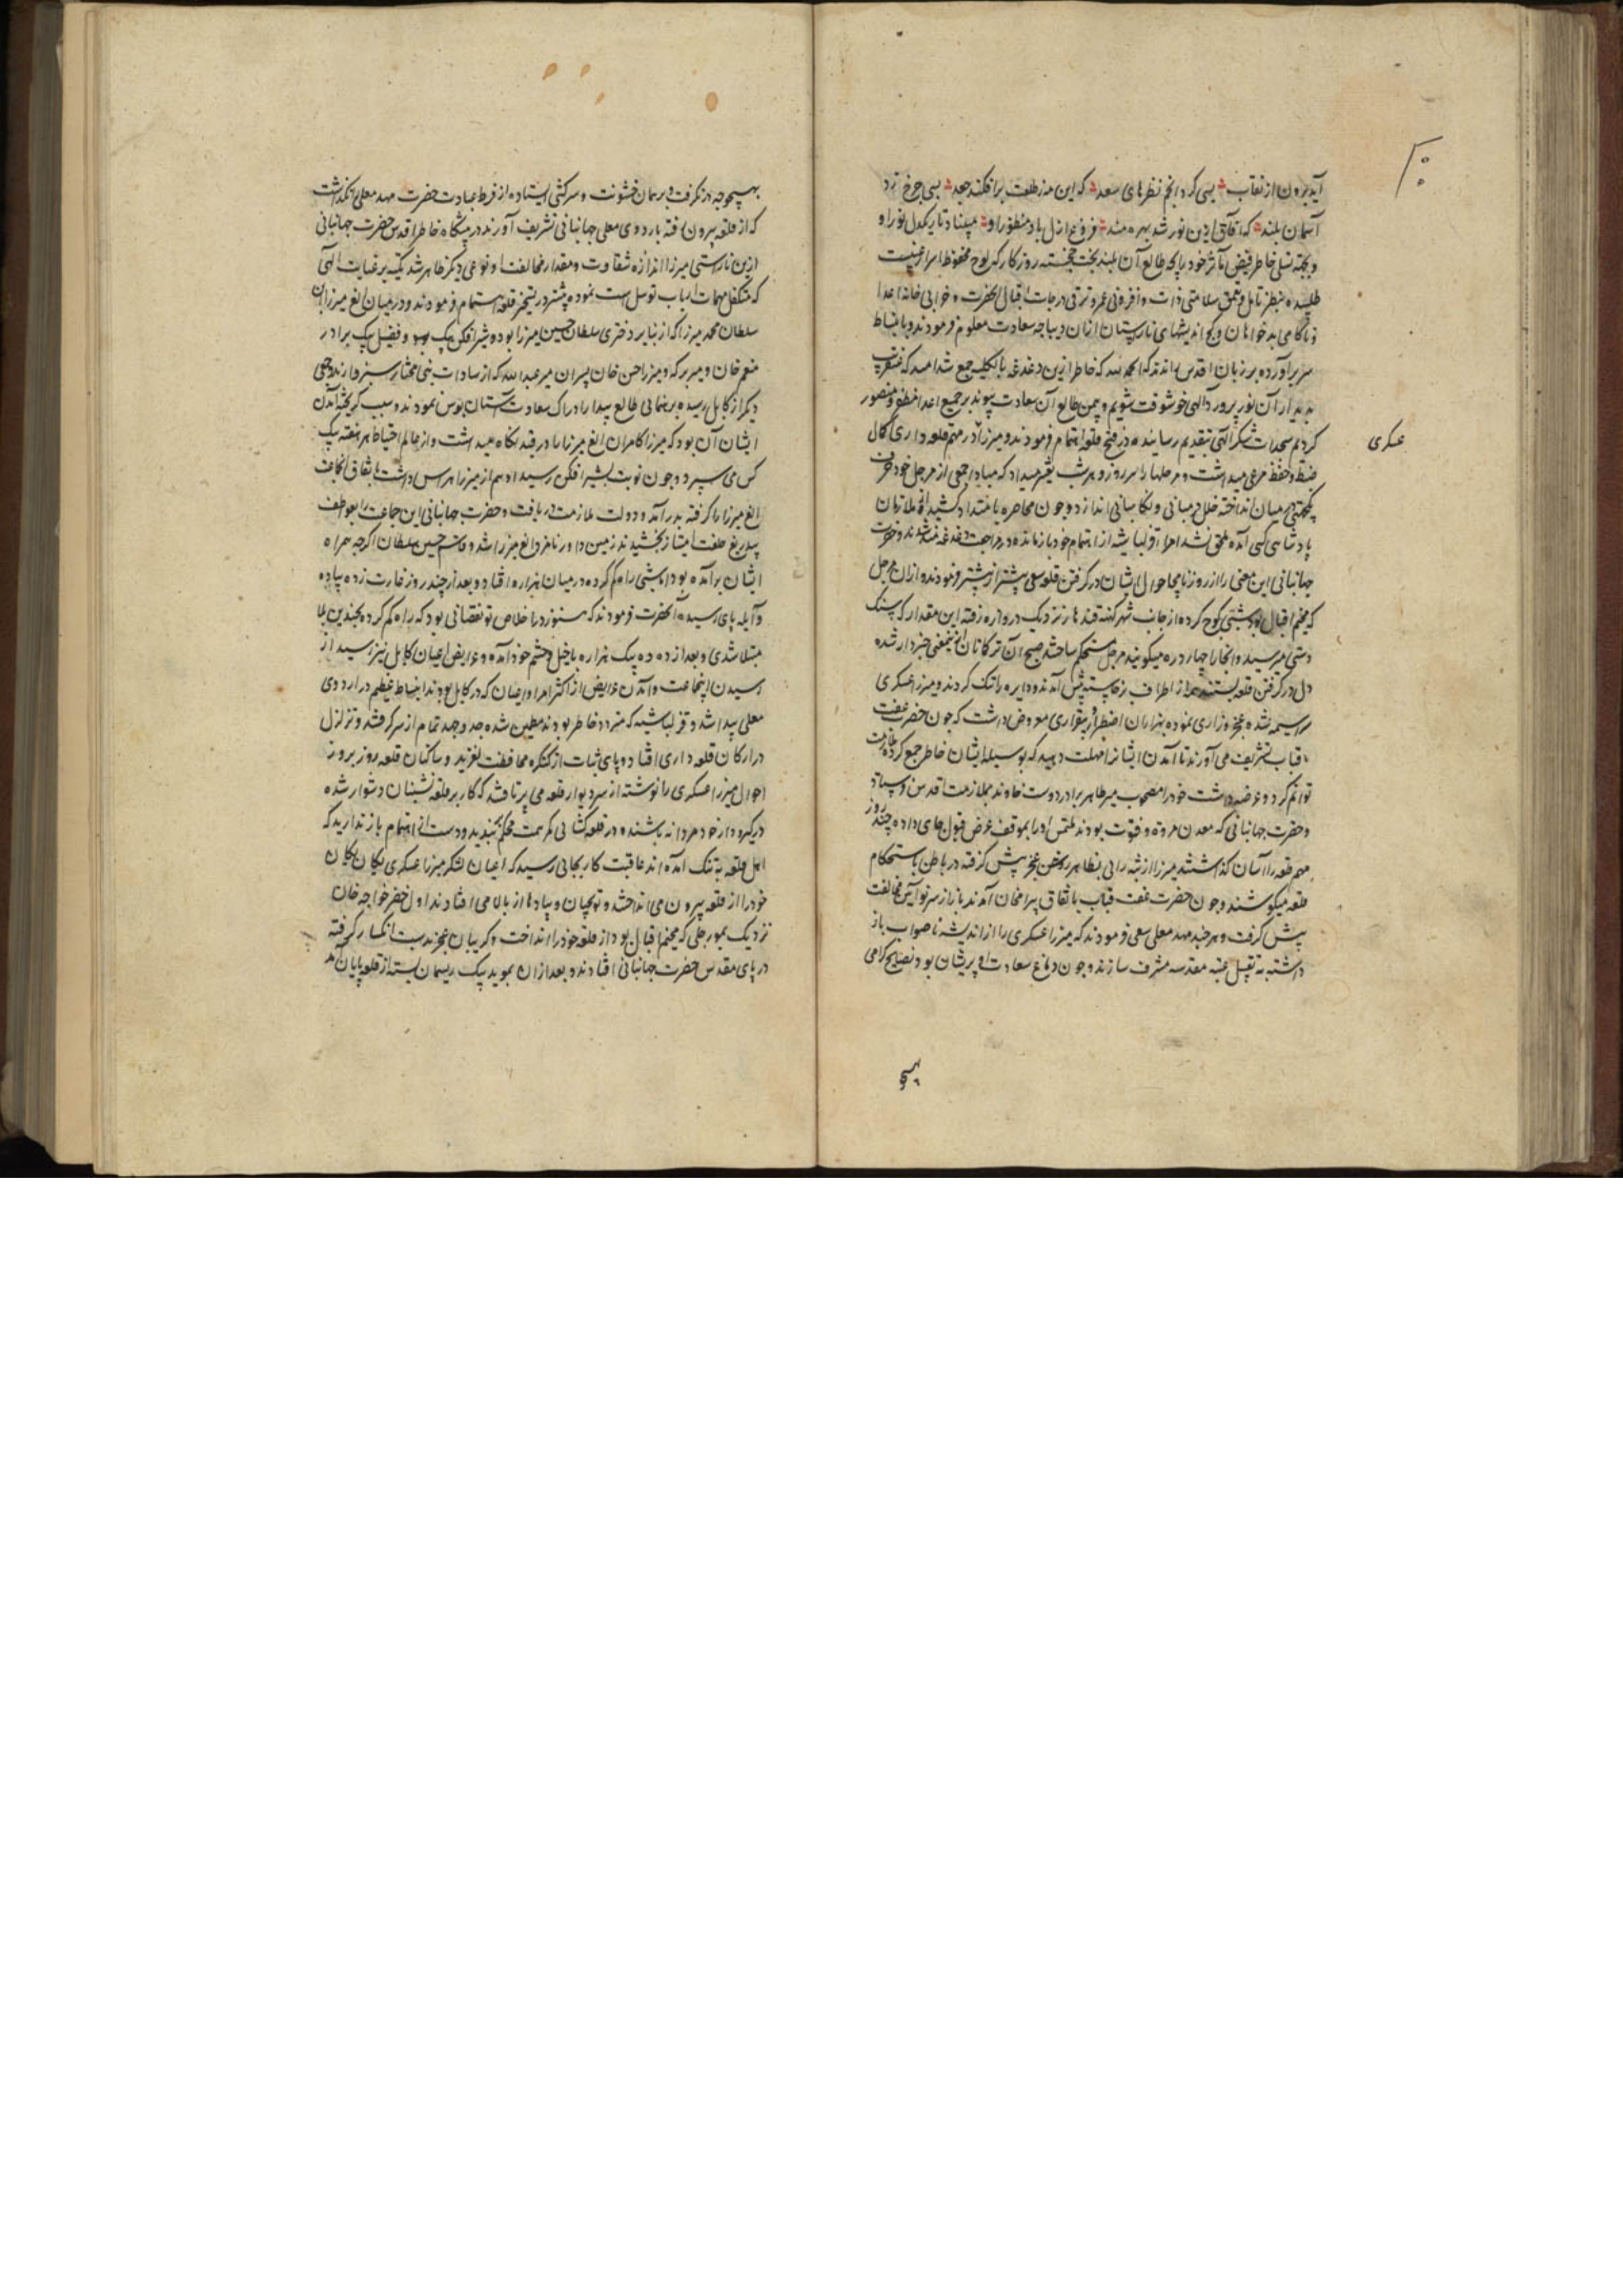 آید برون از نقاب بسی کرد انجم نظرهای سعد که این مه ز طلعت برافکند جعد بسی چرخ زد
آسمان بلند که آفاق ازین نور شد بهره مند فروغ ازل باد منظور او مبینا د تاریک دل نور او
و بجهة تسلی خاطر فیض مآثر خود زایجه طالع آن بلند بخت خجسته روزگار که لوح محفوظ اسرار غیبیست
طلبیده بنظر تامل و تعمق سلامتی ذات و افزونی عمر و ترقی درجات اقبال آنحضرت و خرابی خانه اعدا
و ناکامی بدخواهان و کج اندیشهای ناراستان ازان دیباجه سعادت معلوم فرمودند و بانبساط
سر برآورده بر زبان اقدس راندند که الحمد لله که خاطر ازین دغدغه بالکلیه جمع شد امید که عنقریب
بدیدار آن نور پرورد الهی خوشوقت شویم و بیمن طالع آن سعادت پیوند بر جمیع اعدا مظفر و منصور
کردیم سجدات شکر الهی بتقدیم رسانیده در فتح قلعه اهتمام فرمودند و میرزا در مهم قلعه داری کمال
عسکری
ضبط و حفظ مرعی میداشت و مرجلها را هر روز و هر شب تغییر میداد که مبادا جمعی از مرجل خود حرف
یکجهتی در میان انداخته خلل در مبانی و نکاهبانی اندازد و چون محاصره بامتداد کشید از ملازمان
پادشاهی کسی آمده ملحق نشد امراء قزلباشیه از اهتمام خود باز مانده در مراجعت دغدغه مند شدند و حضرت
جهانبانی این معنی را از روزنامچه احوال ایشان در گرفتن قلعه سعی بیشتر از پیشتر فرمودند و ازان مرجل
که مخیم اقبال بود شبی کوچ کرده از جانب شهر کهنه قندهار نزدیک دروازه رفته این مقدار که سنک
دستی میرسید و انجا را چهار دره میکویند مرجل مستحکم ساختند صبح آن ترکمانان ازینمعنی خبردار شده
دل در گرفتن قلعه بستند و از اطراف برخاسته پیش آمدند و دایره را تنک کردند و میرزا عسکری
سراسیمه شده عجز و زاری نموده بهزاران اضطرار و بیقراری معروض داشت که چون حضرت عفت
قباب تشریف می آورند تا آمدن ایشان امهلت دهید که بوسیله ایشان خاطر جمع کرده ملازمت
توانم کرد و عرضه داشت خود را مصحوب میر طاهر برادر دوست خاوند بملازمت اقدس فرستاد
و حضرت جهانبانی که معدن مروة و فتوت بودند ملتمس او را بموقف عرض قبول جای داده چند روز
مهم قلعه را آسان گذاشتند میرزا از تبه رائی بظاهر سخن عجز پیش گرفته در باطن باستحکام
قلعه میکوشند و چون حضرت عفت قباب باتفاق بیرامخان آمدند باز از سر نو آیین مخالفت
پیش گرفت و هر چند مهد معلی سعی فرمودند که میرزا عسکری را از اندیشه ناصواب باز
داشته به تقبیل عتبه مقدسه مشرف سازند و چون دماغ سعادت او پریشان بود نصایح کرامی
بهیچ
بهیچوجه درنگرفت و بر همان خشونت و سرکشی ایستاده از فرط عبادت حضرت مهد معلی را نگذاشت
که از قلعه بیرون رفته باردوی معلی جهانبانی تشریف آورند در پیشگاه خاطر اقدس حضرت جهانبانی
ازین ناراستی میرزا اندازه شقاوت و مقدار مخالفت او نوعی دیگر ظاهر شد تکیه بر عنایت الهی
که متکفل مهمات ارباب توسل است نموده بیشتر در تسخیر قلعه اهتمام فرمودند و درین میان الغ میرزا ابن
سلطان محمد میرزا که از نبایر دختری سلطان حسین میرزا بوده و شیر افکن بیک و فضیل بیک برادر
منعم خان و میر برکه و میرزا حسن خان پسران میر عبدالله که از سادات بنی مختار سبزوارند و جمعی
دیگر از کابل رسیده برهنمائی طالع بیدار ادراک سعادت آستان بوس نمودند و سبب گریخته آمدن
ایشان آن بود که میرزا کامران الغ میرزا را در قید نگاه میداشت و از عالم احتیاط هر هفته بیک
کس می سپرد و چون نوبت بشیر افکن رسید او هم از میرزا هراس داشت باتفاق انجماعت
الغ میرزا را گرفته بدر آمد و دولت ملازمت دریافت و حضرت جهانبانی این جماعت را بعواطف
بیدریغ خلعت امتیاز بخشیدند زمین داور نامزد الغ میرزا شد و قاسم حسین سلطان اگرچه همراه
ایشان برآمده بود اما شبی راه گم کرده در میان هزاره افتاد و بعد از چند روز غارت زده پیاده
و آبله پای رسیده آنحضرت فرمودند که هنوز در اخلاص تو نقصانی بود که راه گم کرده بچندین بلا
مبتلا شدی و بعد از ده ده بیک هزاره با خیل و حشم خود آمده و عرایض اعیان کابل نیز رسید از
رسیدن اینجماعت و آمدن عرایض از اکثر امرا و اعیان که در کابل بودند انبساط عظیم در اردوی
معلی پیدا شد و قزلباشیه که متردد خاطر بودند مطمین شده جد و جهد تمام از سر گرفتند و تزلزل
در ارکان قلعه داری افتاد و پای ثبات از کنگره محافظت لغزید و ساکنان قلعه روز بروز
احوال میرزا عسکری را نوشته از سر دیوار قلعه می پرتافتند که کار بر قلعه نشینان دشوار شده
درگیرودار خود مردانه باشند و در قلعه کشائی کمر همت محکم ببندید و دست از اهتمام باز ندارید که
اهل قلعه به تنگ آمده اند عاقبت کار بجائی رسید که اعیان لشکر میرزا عسکری یکان یکان
خود را از قلعه بیرون می انداختند و توپچیان و پیادها از بالا می افتادند اول خضر خواجه خان
نزدیک بمورجلی که مخیم اقبال بود از قلعه خود را انداخت و گریبان عجز بدست انکسار گرفته
در پای مقدس حضرت جهانبانی افتادند و بعد ازان موید بیک ریسمان بسته از قلعه پایان آمد